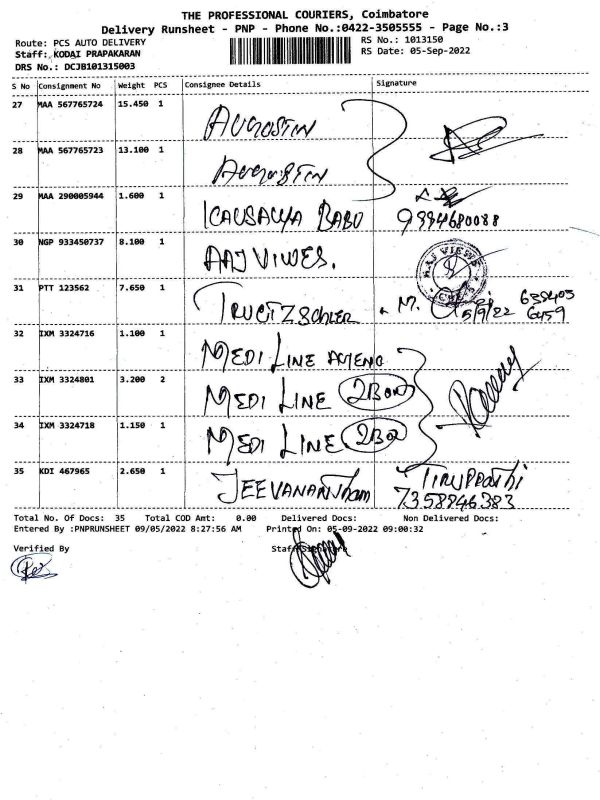 THE PROFESSIONAL COURIERS, Coimbatore
Delivery Runsheet - PNP - Phone No.:0422-3505555 - Page No.:3
Route: PCS AUTO DELIVERY
RS No.: 1013150
Staff: KODAI PRAPAKARAN
RS Date: 05-Sep-2022
DRS No.: DCJB101315003
S No Consignment No Weight PCS Consignee Details Signature
27 MAA 567765724 15.450 1 AUGOSTIN
28 MAA 567765723 13.100 1 AUGOSTIN
29 MAA 290005944 1.600 1 KAUSALYA BABU 9994680088
30 NGP 933450737 8.100 1 AAJ VIWES.
31 PTT 123562 7.650 1 TRUETZSCHLER M. 5/9/22
32 IXM 3324716 1.100 1 MEDI LINE
33 IXM 3324801 3.200 2 MEDI LINE 2Box
34 IXM 3324718 1.150 1 MEDI LINE
35 KDI 467965 2.650 1 JEEVANANTHAM
Total No. Of Docs: 35 Total COD Amt: 0.00 Delivered Docs: Non Delivered Docs:
Entered By :PNPRUNSHEET 09/05/2022 8:27:56 AM Printed On: 05-09-2022 09:00:32
Verified By Staff Signature